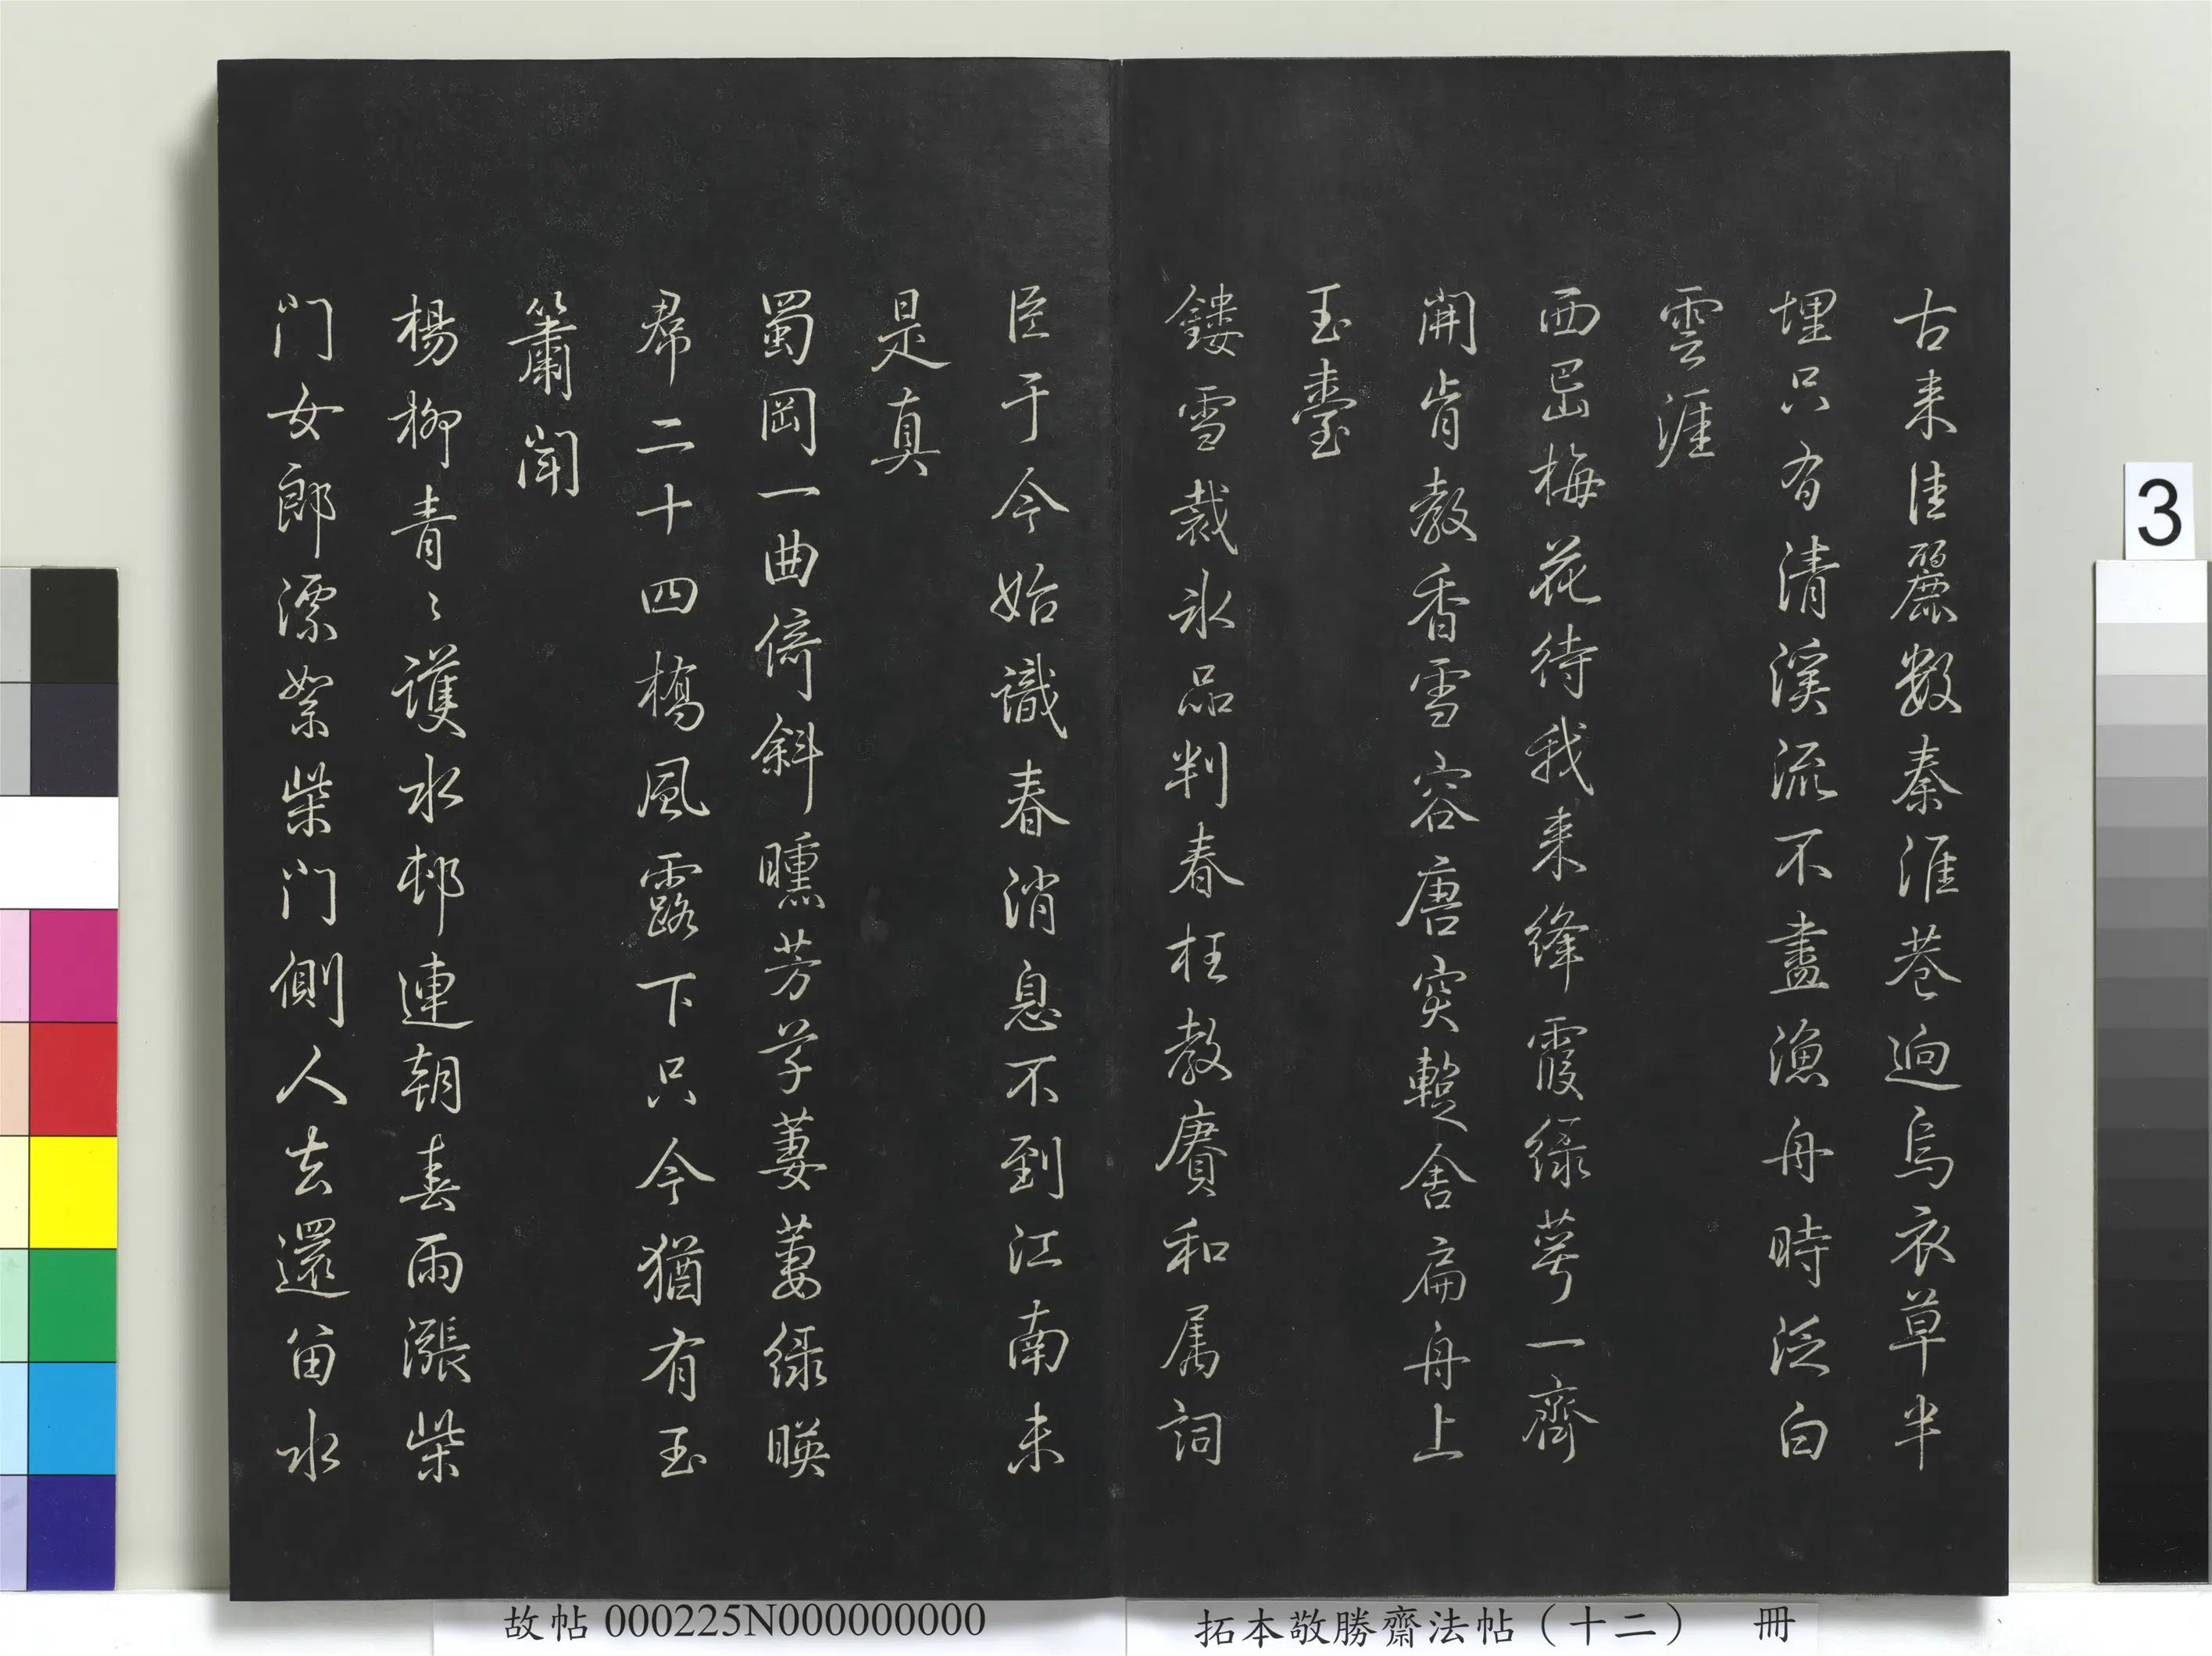 古来佳麗数秦淮巷迥烏衣草半
埋只有清溪流不盡漁舟時泛白
雲涯
西崦梅花待我来絳霞綠萼一齊
開肯教香雪容唐突暫舍扁舟上
玉臺
鏤雪裁氷品判春枉教賡和属詞
臣于今始識春消息不到江南未
是真
蜀岡一曲倚斜曛芳草萋萋緑暎
帬二十四橋風露下只今猶有玉
簫聞
楊柳青〻護水邨連朝春雨漲柴
门女郎漂絮柴门側人去還留水
故帖000225N000000000
拓本敬勝齋法帖（十二） 冊
3